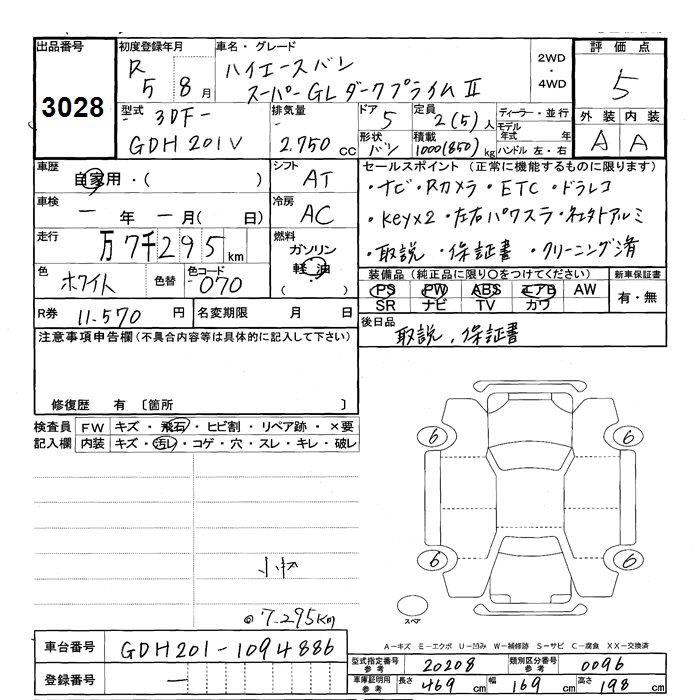 出品番号
3028
初度登録年月
R 5 8月
車名・グレード
ハイエースバン
スーパーGLダークプライムⅡ
2WD
・
4WD
評価点
5
外装 内装
A A
型式
3DF-
GDH201V
排気量
2.750 cc
ドア
5
形状
バン
定員
2(5)人
積載
1000(850)kg
ディーラー・並行
モデル年式 年
ハンドル 左・右
車歴
自家用・( )
シフト
AT
車検
一 年 一 月( 日)
冷房
AC
走行
万7千295km
燃料
ガソリン
軽油
( )
色
ホワイト
色替
色コード
070
R券 11.570 円
名変期限 月 日
セールスポイント(正常に機能するものに限ります)
・ナビ・Rカメラ・ETC・ドラレコ
・Keyx2・左右パワスラ・社外アルミ
・取説・保証書・クリーニング済
装備品(純正品に限り○をつけてください)
PS PW ABS エアB AW
SR ナビ TV カワ
新車保証書
有・無
後日品
取説、保証書
注意事項申告欄(不具合内容等は具体的に記入して下さい)
修復歴 有 〔箇所 〕
検査員
記入欄
FW キズ・飛石・ヒビ割・リペア跡・×要
内装 キズ・汚レ・コゲ・穴・スレ・キレ・破レ
小林
◎7.295Km
6 6
6 6
スペア
A－キズ E－エクボ U－凹み W－補修跡 S－サビ C－腐食 XX－交換済
車台番号 GDH201-1094886
登録番号 一
型式指定番号 参考 20208
類別区分番号 参考 0096
車庫証明用 参考 長さ 469 cm 幅 169 cm 高さ 198 cm